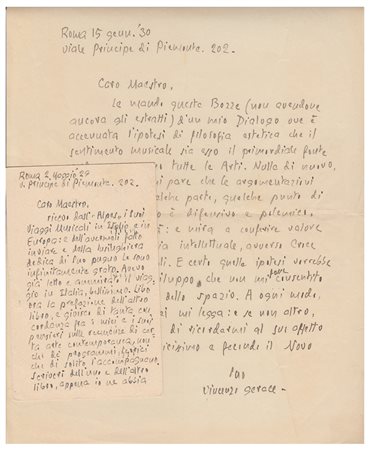 Roma 15 genn. '30
Viale Principe di Piemonte. 202.
Caro Maestro,
Le mando queste Bozze (non avendone
ancora gli estratti) d'un mio Dialogo ove è
accennata l'ipotesi di filosofia estetica che il
sentimento musicale sia esso il primordiale fonte
tutte le Arti. Nulla di nuovo,
pare che le argomentazioni
qualche parte, qualche punto di
è difensivo e polemico,
: e mira a conferire valore
intellettuale, avverso Croce
E certo quella ipotesi vorrebbe
sviluppo che non mi consentito
dello spazio. A ogni modo,
mi legga: e se non altro,
di ricordarmi al suo affetto
e fecondo il Novo
Suo
Vincenzo Gerace
Roma 2 Maggio 29
Principe di Piemonte. 202.
Caro Maestro,
ricevo dall'Alpes i suoi
Viaggi Musicali in Italia e in
Europa: e dell'avermeli fatto
inviare e della lusinghiera
dedica di suo pugno le sono
infinitamente grato. Avevo
già letto e ammirato il viag-
gio in Italia, bellissimo libro
ora la prefazione dell'altro
libro, e gioisco di tanta con-
cordanza fra i miei e i suoi
pensieri sulla
ta arte contemporanea, non
che dei programmi
che di solito l'accompagnano.
Scriverò dell'uno e dell'altro
libro, appena io ne abbia